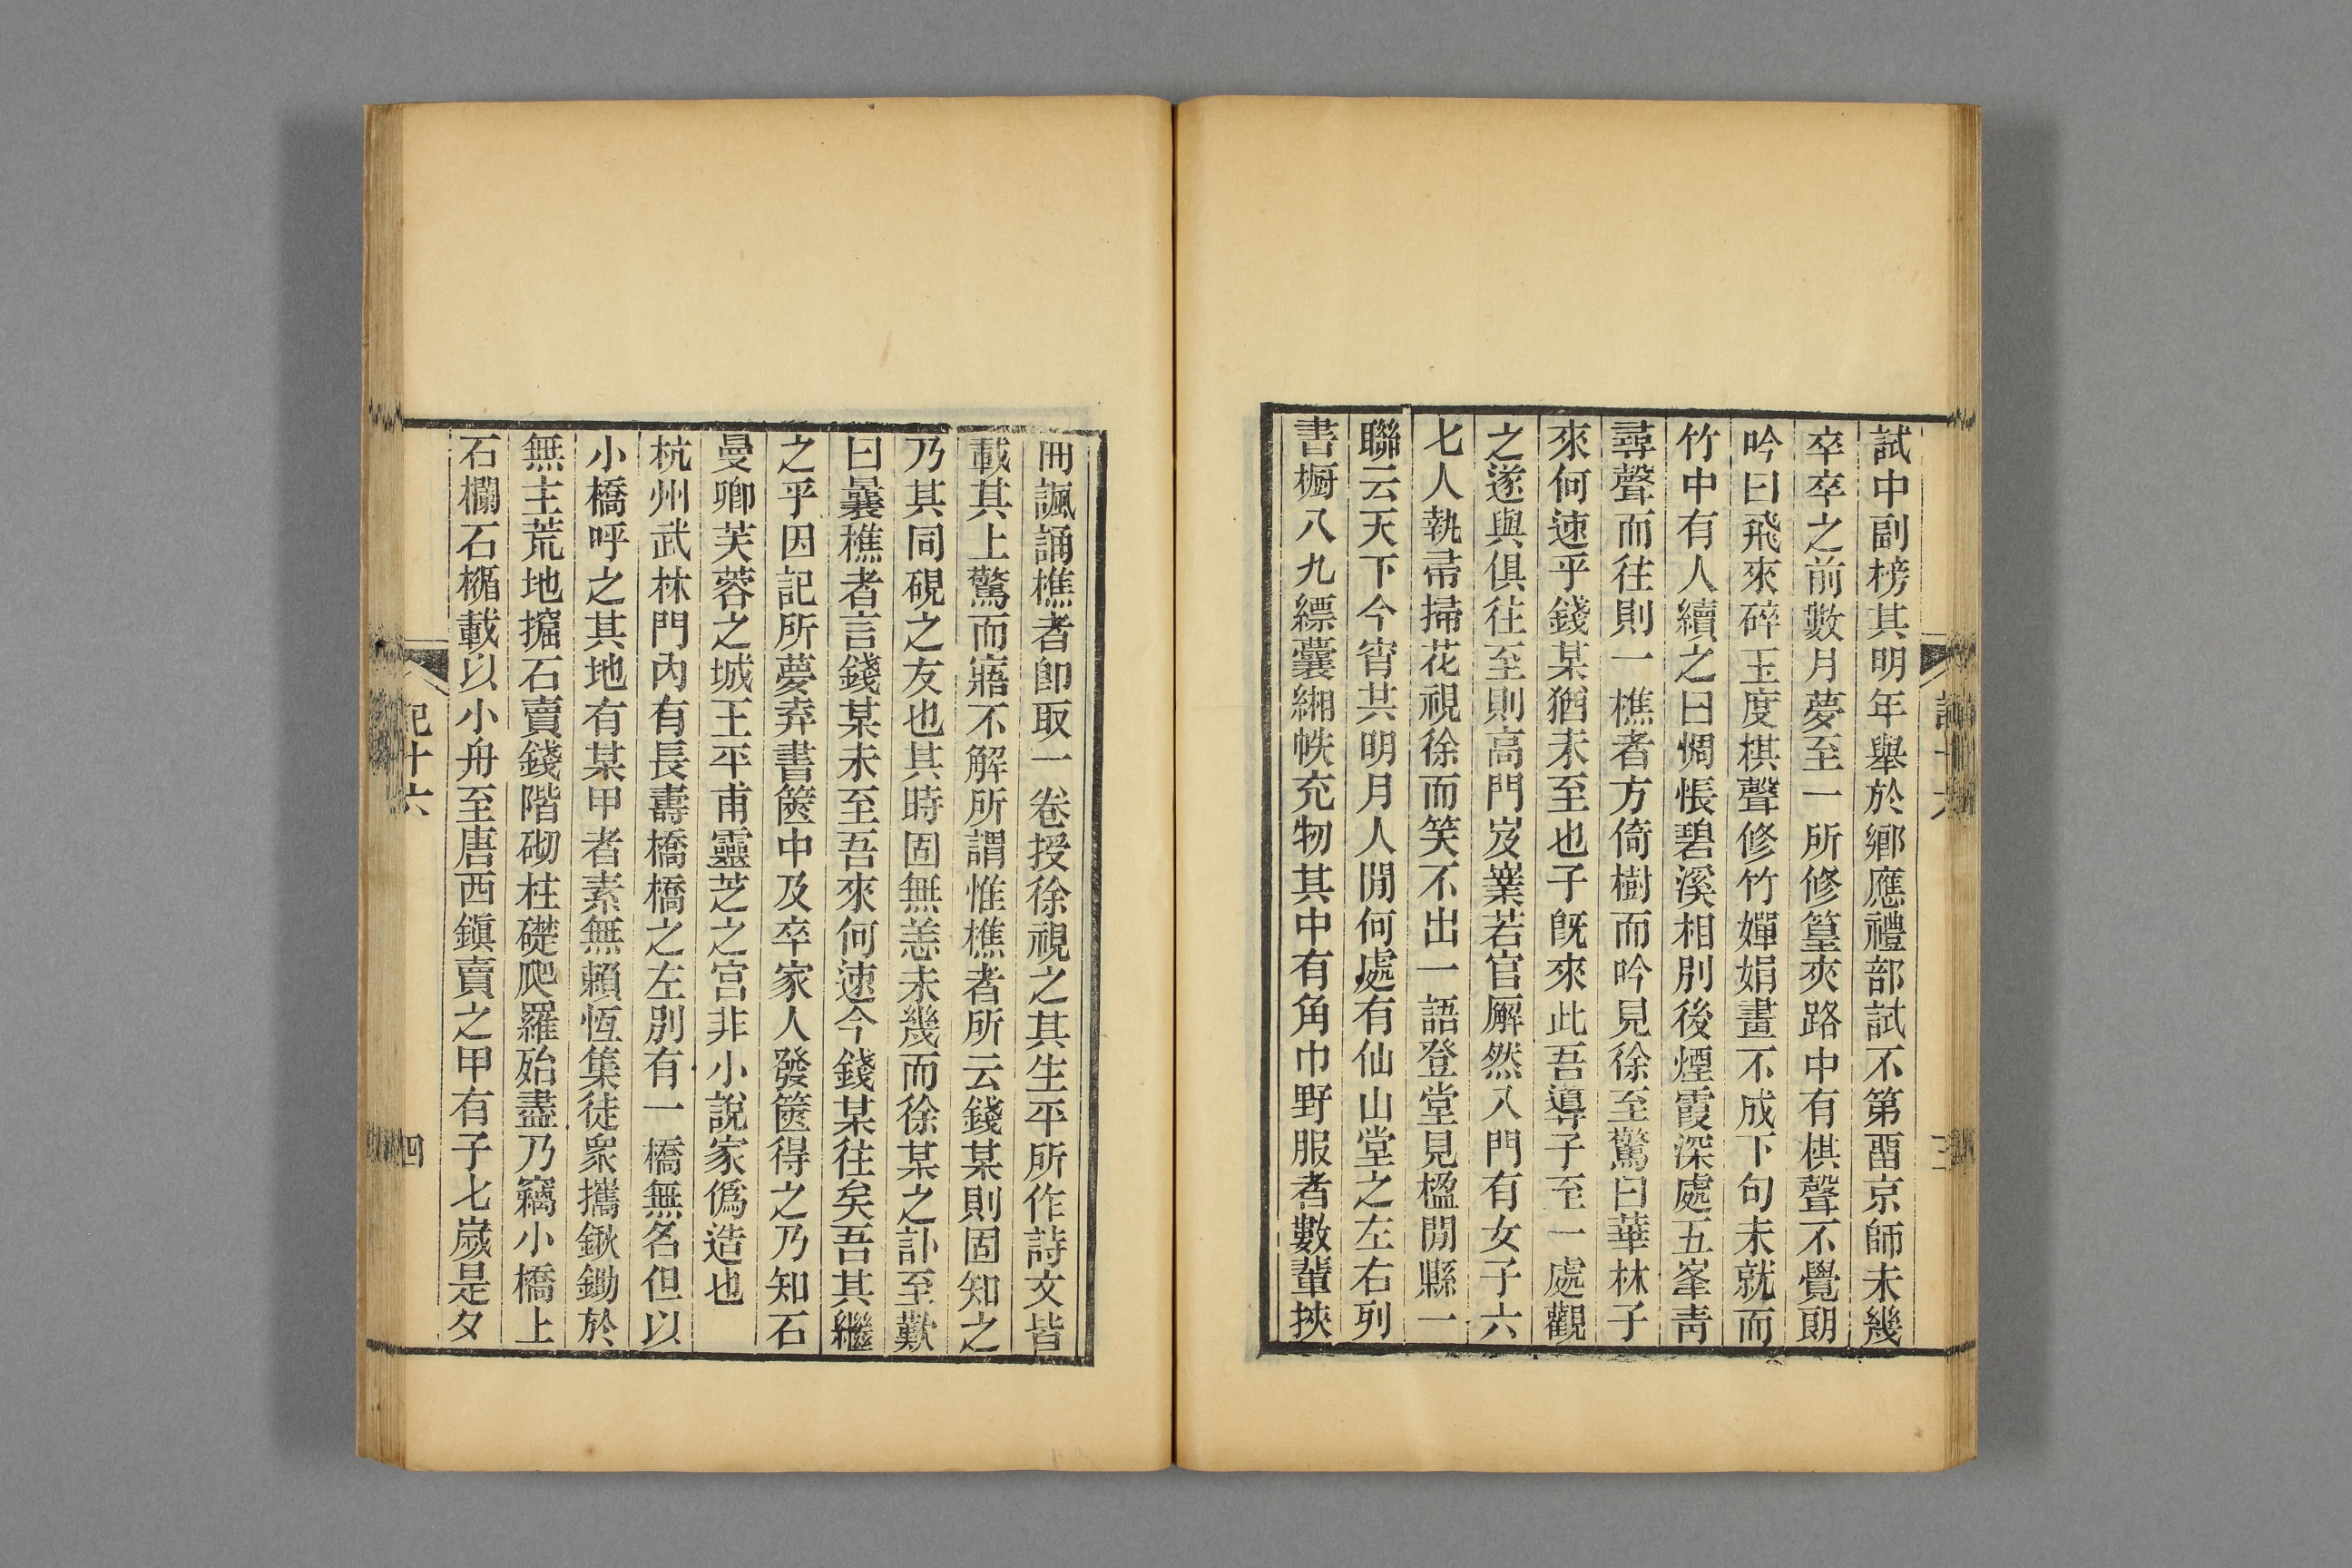 試中副榜其明年舉於鄉應禮部試不第畱京師未幾
卒卒之前數月夢至一所修篁夾路中有棋聲不覺朗
吟曰飛來碎玉度棋聲修竹嬋娟畫不成下句未就而
竹中有人續之曰惆悵碧溪相別後煙霞深處五峯靑
尋聲而往則一樵者方倚樹而吟見徐至驚曰華林子
來何速乎錢某猶未至也子旣來此吾導子至一處觀
之遂與俱往至則高門岌嶪若官廨然入門有女子六
七人執帚掃花視徐而笑不出一語登堂見楹閒縣一
聯云天下今宵共明月人閒何處有仙山堂之左右列
書櫥八九縹囊緗帙充牣其中有角巾野服者數輩挾
冊諷誦樵者卽取一卷授徐視之其生平所作詩文皆
載其上驚而寤不解所謂惟樵者所云錢某則固知之
乃其同硯之友也其時固無恙未幾而徐某之訃至歎
曰曩樵者言錢某未至吾來何速今錢某往矣吾其繼
之乎因記所夢弆書篋中及卒家人發篋得之乃知石
曼卿芙蓉之城王平甫靈芝之宮非小說家僞造也
杭州武林門內有長壽橋橋之左別有一橋無名但以
小橋呼之其地有某甲者素無賴恆集徒衆攜鍬鋤於
無主荒地掘石賣錢階砌柱礎爬羅殆盡乃竊小橋上
石欄石楯載以小舟至唐西鎭賣之甲有子七歲是夕
記十六
四